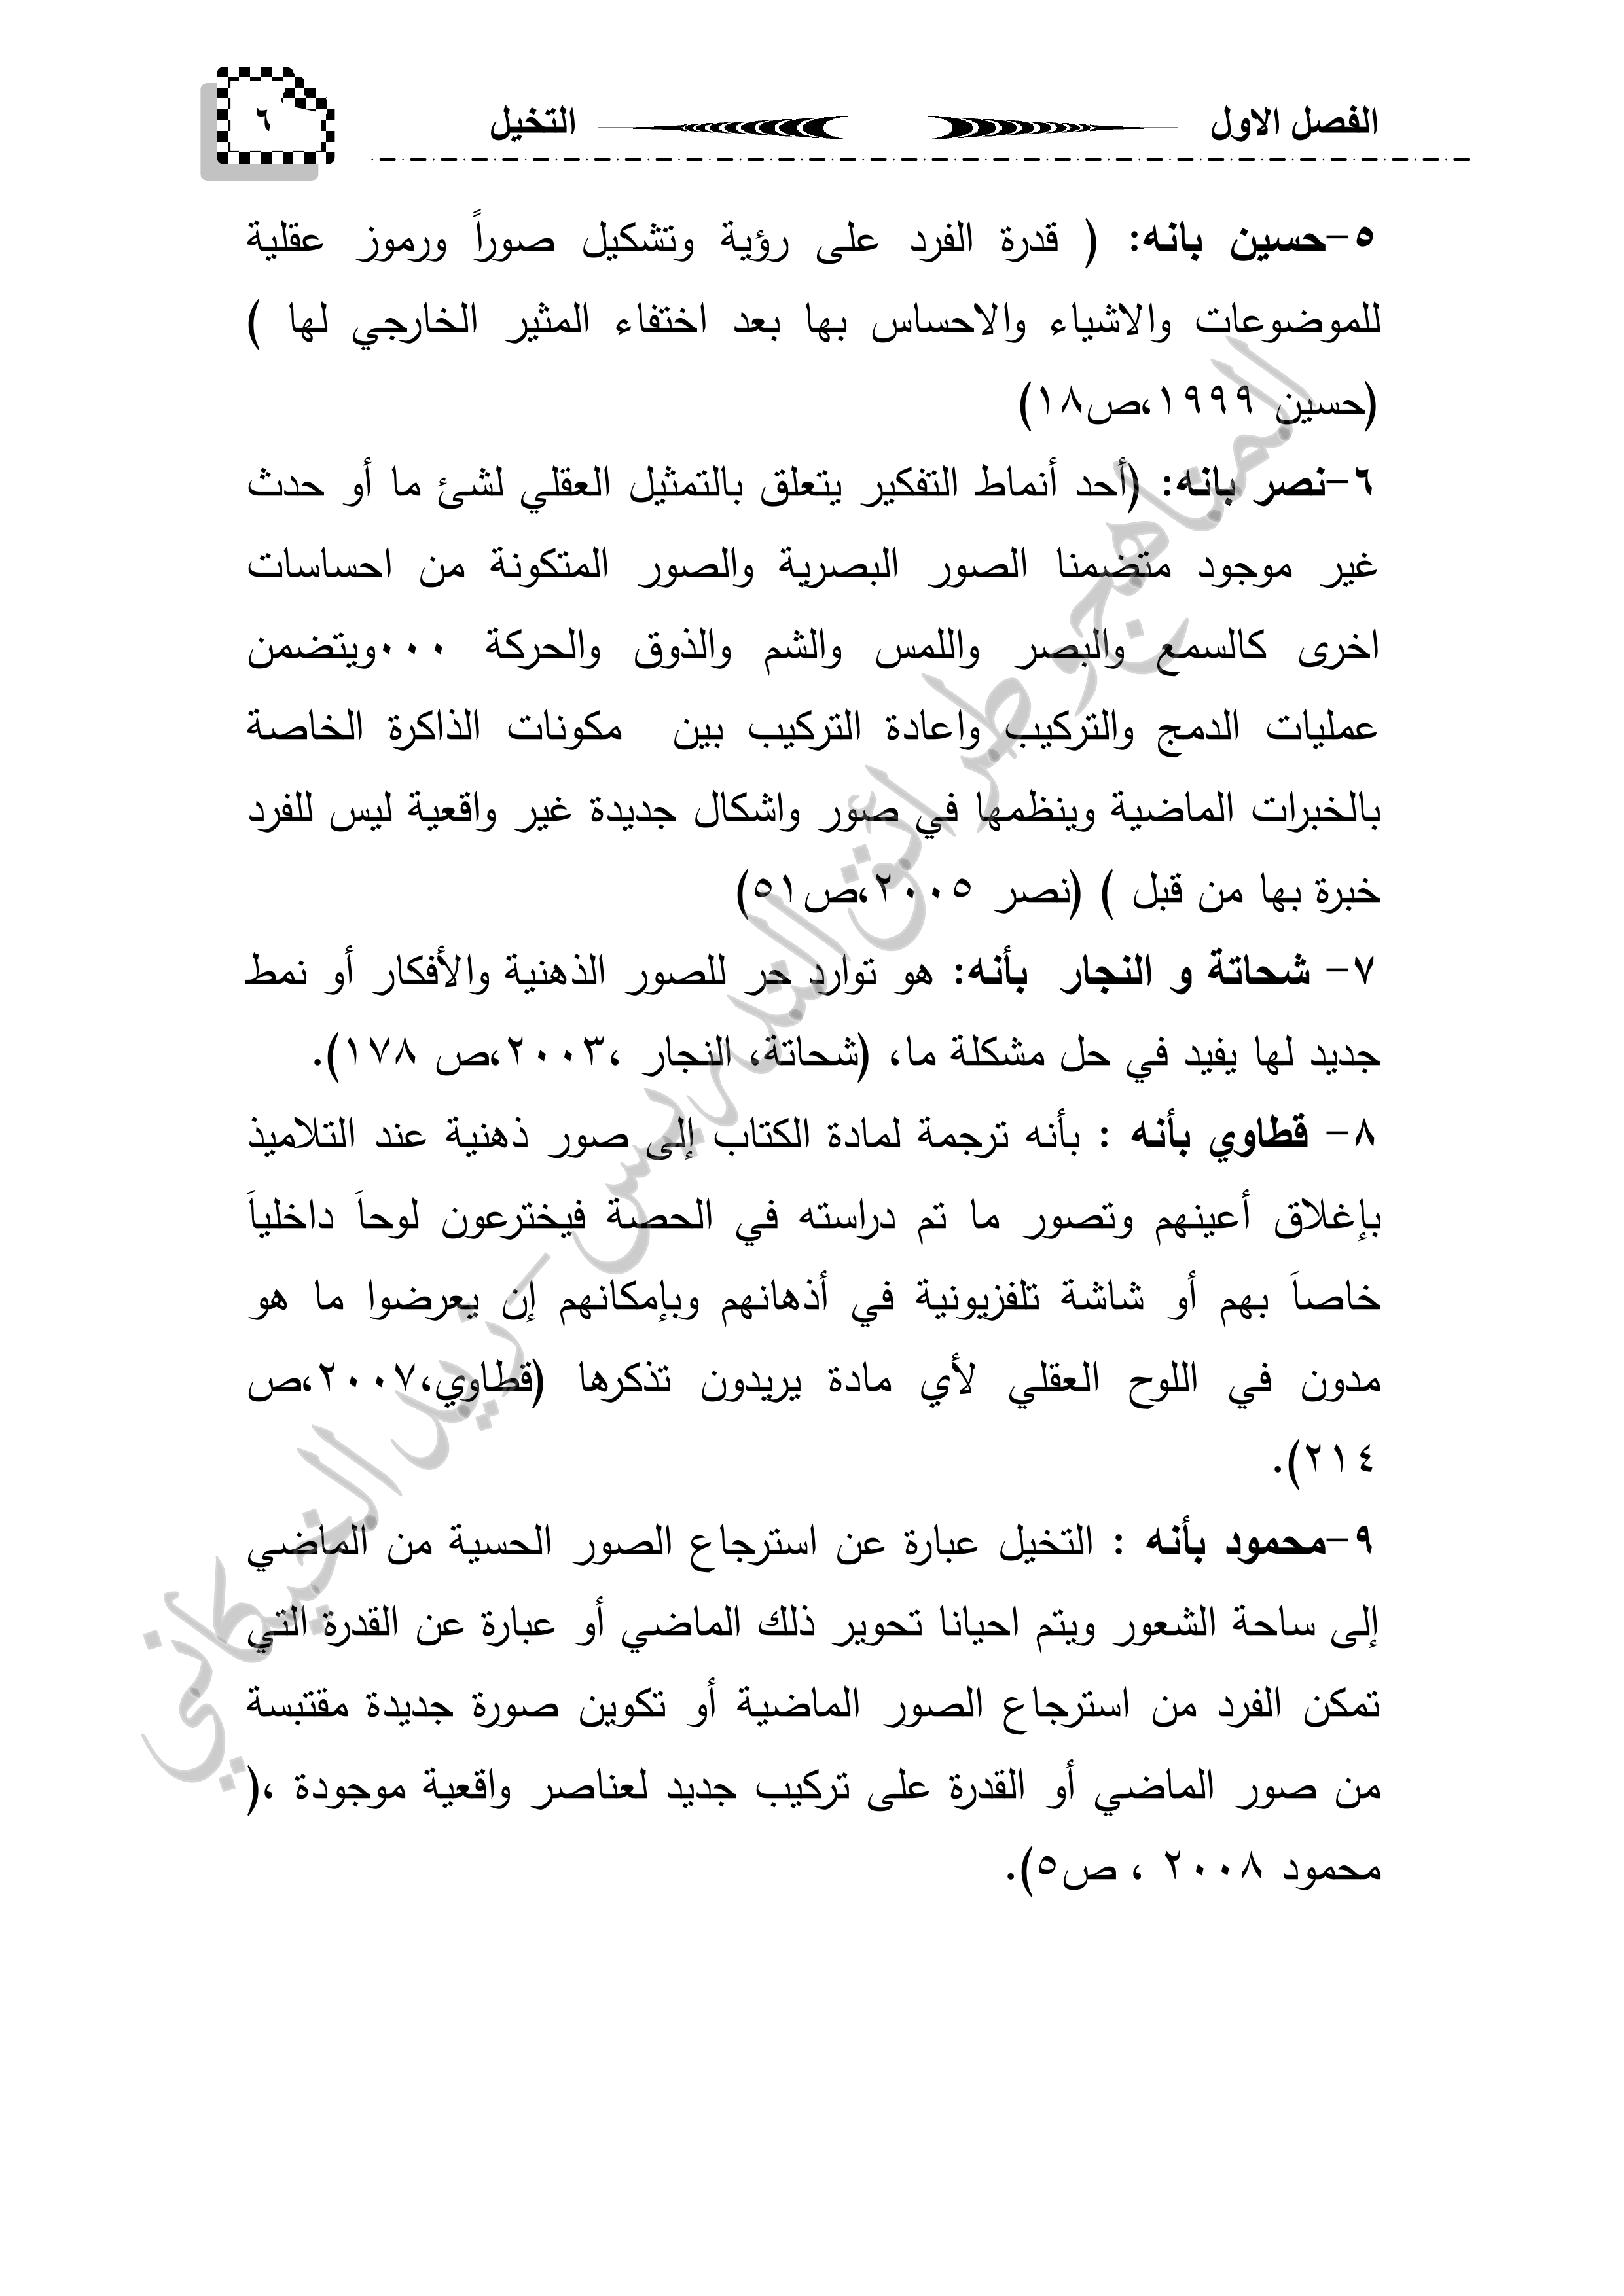 الفصل الاول التخيل ٦
٥-حسين بانه: ( قدرة الفرد على رؤية وتشكيل صوراً ورموز عقلية
للموضوعات والاشياء والاحساس بها بعد اختفاء المثير الخارجي لها )
(حسين ١٩٩٩،ص١٨)
٦-نصر بانه: (أحد أنماط التفكير يتعلق بالتمثيل العقلي لشئ ما أو حدث
غير موجود متضمنا الصور البصرية والصور المتكونة من احساسات
اخرى كالسمع والبصر واللمس والشم والذوق والحركة ٠٠٠ويتضمن
عمليات الدمج والتركيب واعادة التركيب بين مكونات الذاكرة الخاصة
بالخبرات الماضية وينظمها في صور واشكال جديدة غير واقعية ليس للفرد
خبرة بها من قبل ) (نصر ٢٠٠٥،ص٥١)
٧- شحاتة و النجار بأنه: هو توارد حر للصور الذهنية والأفكار أو نمط
جديد لها يفيد في حل مشكلة ما، (شحاتة، النجار ،٢٠٠٣،ص ١٧٨).
٨- قطاوي بأنه : بأنه ترجمة لمادة الكتاب إلى صور ذهنية عند التلاميذ
بإغلاق أعينهم وتصور ما تم دراسته في الحصة فيخترعون لوحاَ داخلياَ
خاصاَ بهم أو شاشة تلفزيونية في أذهانهم وبإمكانهم إن يعرضوا ما هو
مدون في اللوح العقلي لأي مادة يريدون تذكرها (قطاوي،٢٠٠٧،ص
٢١٤).
٩-محمود بأنه : التخيل عبارة عن استرجاع الصور الحسية من الماضي
إلى ساحة الشعور ويتم احيانا تحوير ذلك الماضي أو عبارة عن القدرة التي
تمكن الفرد من استرجاع الصور الماضية أو تكوين صورة جديدة مقتبسة
من صور الماضي أو القدرة على تركيب جديد لعناصر واقعية موجودة ،(
محمود ٢٠٠٨ ، ص٥).
المناهج و طرائق التدريس - زيد الخيكاني